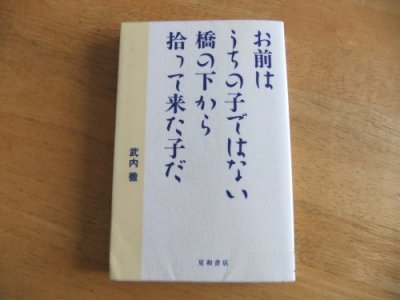 お前は
うちの子ではない
橋の下から
拾って来た子だ
武内 徹
星和書店